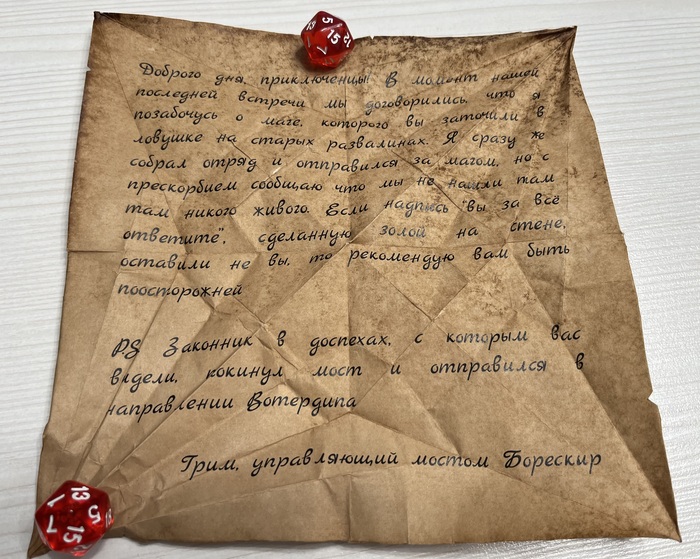 Доброго дня, приключенцы! В момент нашей
последней встречи мы договорились, что я
позабочусь о маге, которого вы заточили в
ловушке на старых развалинах. Я сразу же
собрал отряд и отправился за магом, но с
прескорбием сообщаю что мы не нашли там
там никого живого. Если надпись "вы за всё
ответите", сделанную золой на стене,
оставили не вы, то рекомендую вам быть
поосторожней
P.S Законник в доспехах, с которым вас
видели, покинул мост и отправился в
направлении Вотердипа
Грим, управляющий мостом Борескир
13
5
15
12
7
13
1
5
7
15